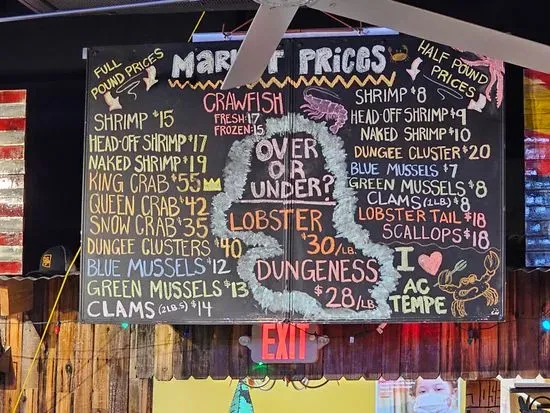 MARKET PRICES
FULL
POUND PRICES
SHRIMP $15
HEAD-OFF SHRIMP $17
NAKED SHRIMP $19
KING CRAB $55
QUEEN CRAB $42
SNOW CRAB $35
DUNGEE CLUSTERS $40
BLUE MUSSELS $12
GREEN MUSSELS $13
CLAMS (2LB.S) $14
CRAWFISH
FRESH: 17
FROZEN: 15
OVER
OR
UNDER?
LOBSTER
$30/LB.
DUNGENESS
$28/LB
HALF POUND
PRICES
SHRIMP $8
HEAD-OFF SHRIMP $9
NAKED SHRIMP $10
DUNGEE CLUSTER $20
BLUE MUSSELS $7
GREEN MUSSELS $8
CLAMS (1LB.) $8
LOBSTER TAIL $18
SCALLOPS $18
I
AC
TEMPE
EXIT